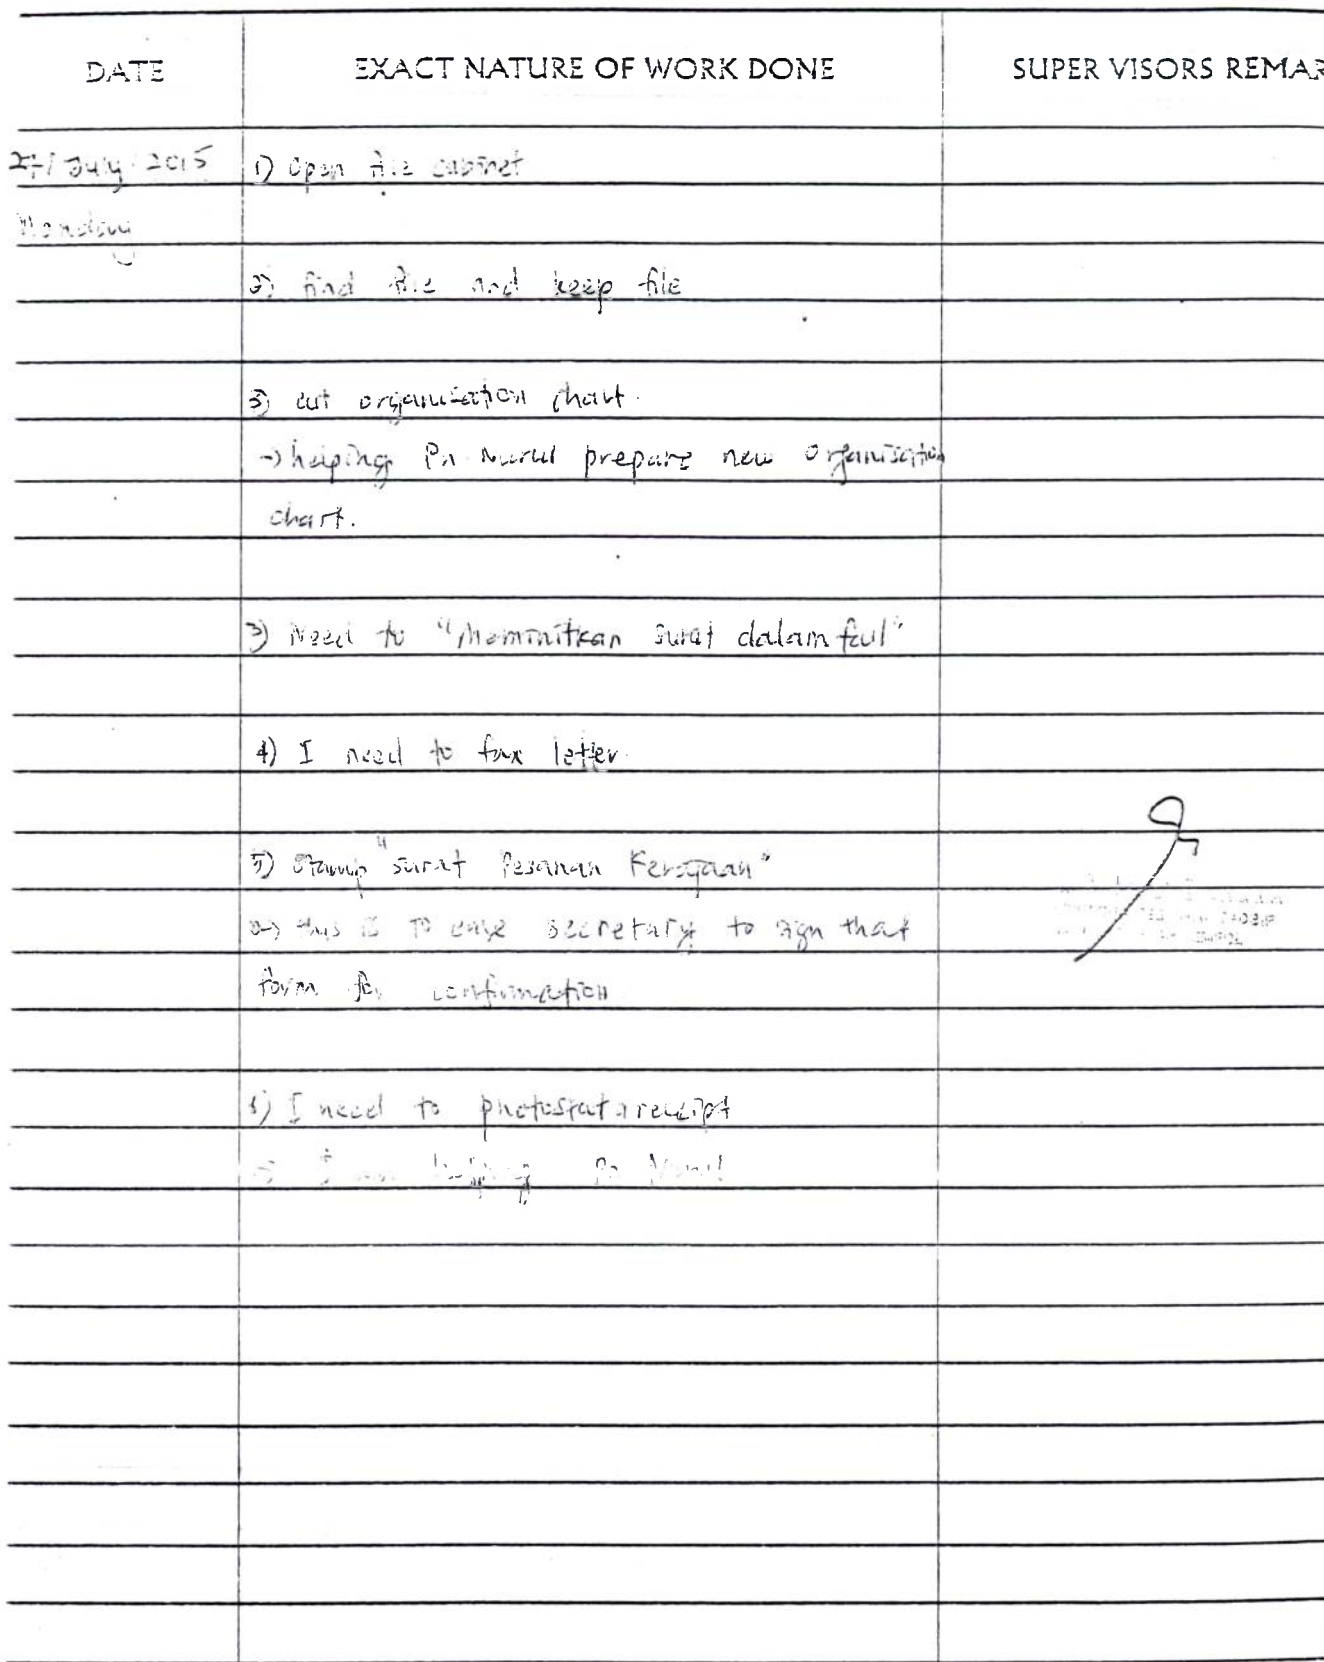 DATE EXACT NATURE OF WORK DONE SUPER VISORS REMAR
27 / July / 2015 1) Open file cabinet
Monday
2) find file and keep file
3) cut organisation chart.
-> helping Pn Nurul prepare new organisation
chart.
3) Need to "Meminitkan surat dalam fail"
4) I need to fax letter.
5) Stamp "surat Pesanan Kerajaan"
-> this is to ease secretary to sign that
form for confirmation
I need to photostat a receipt
I am helping Pn Nurul